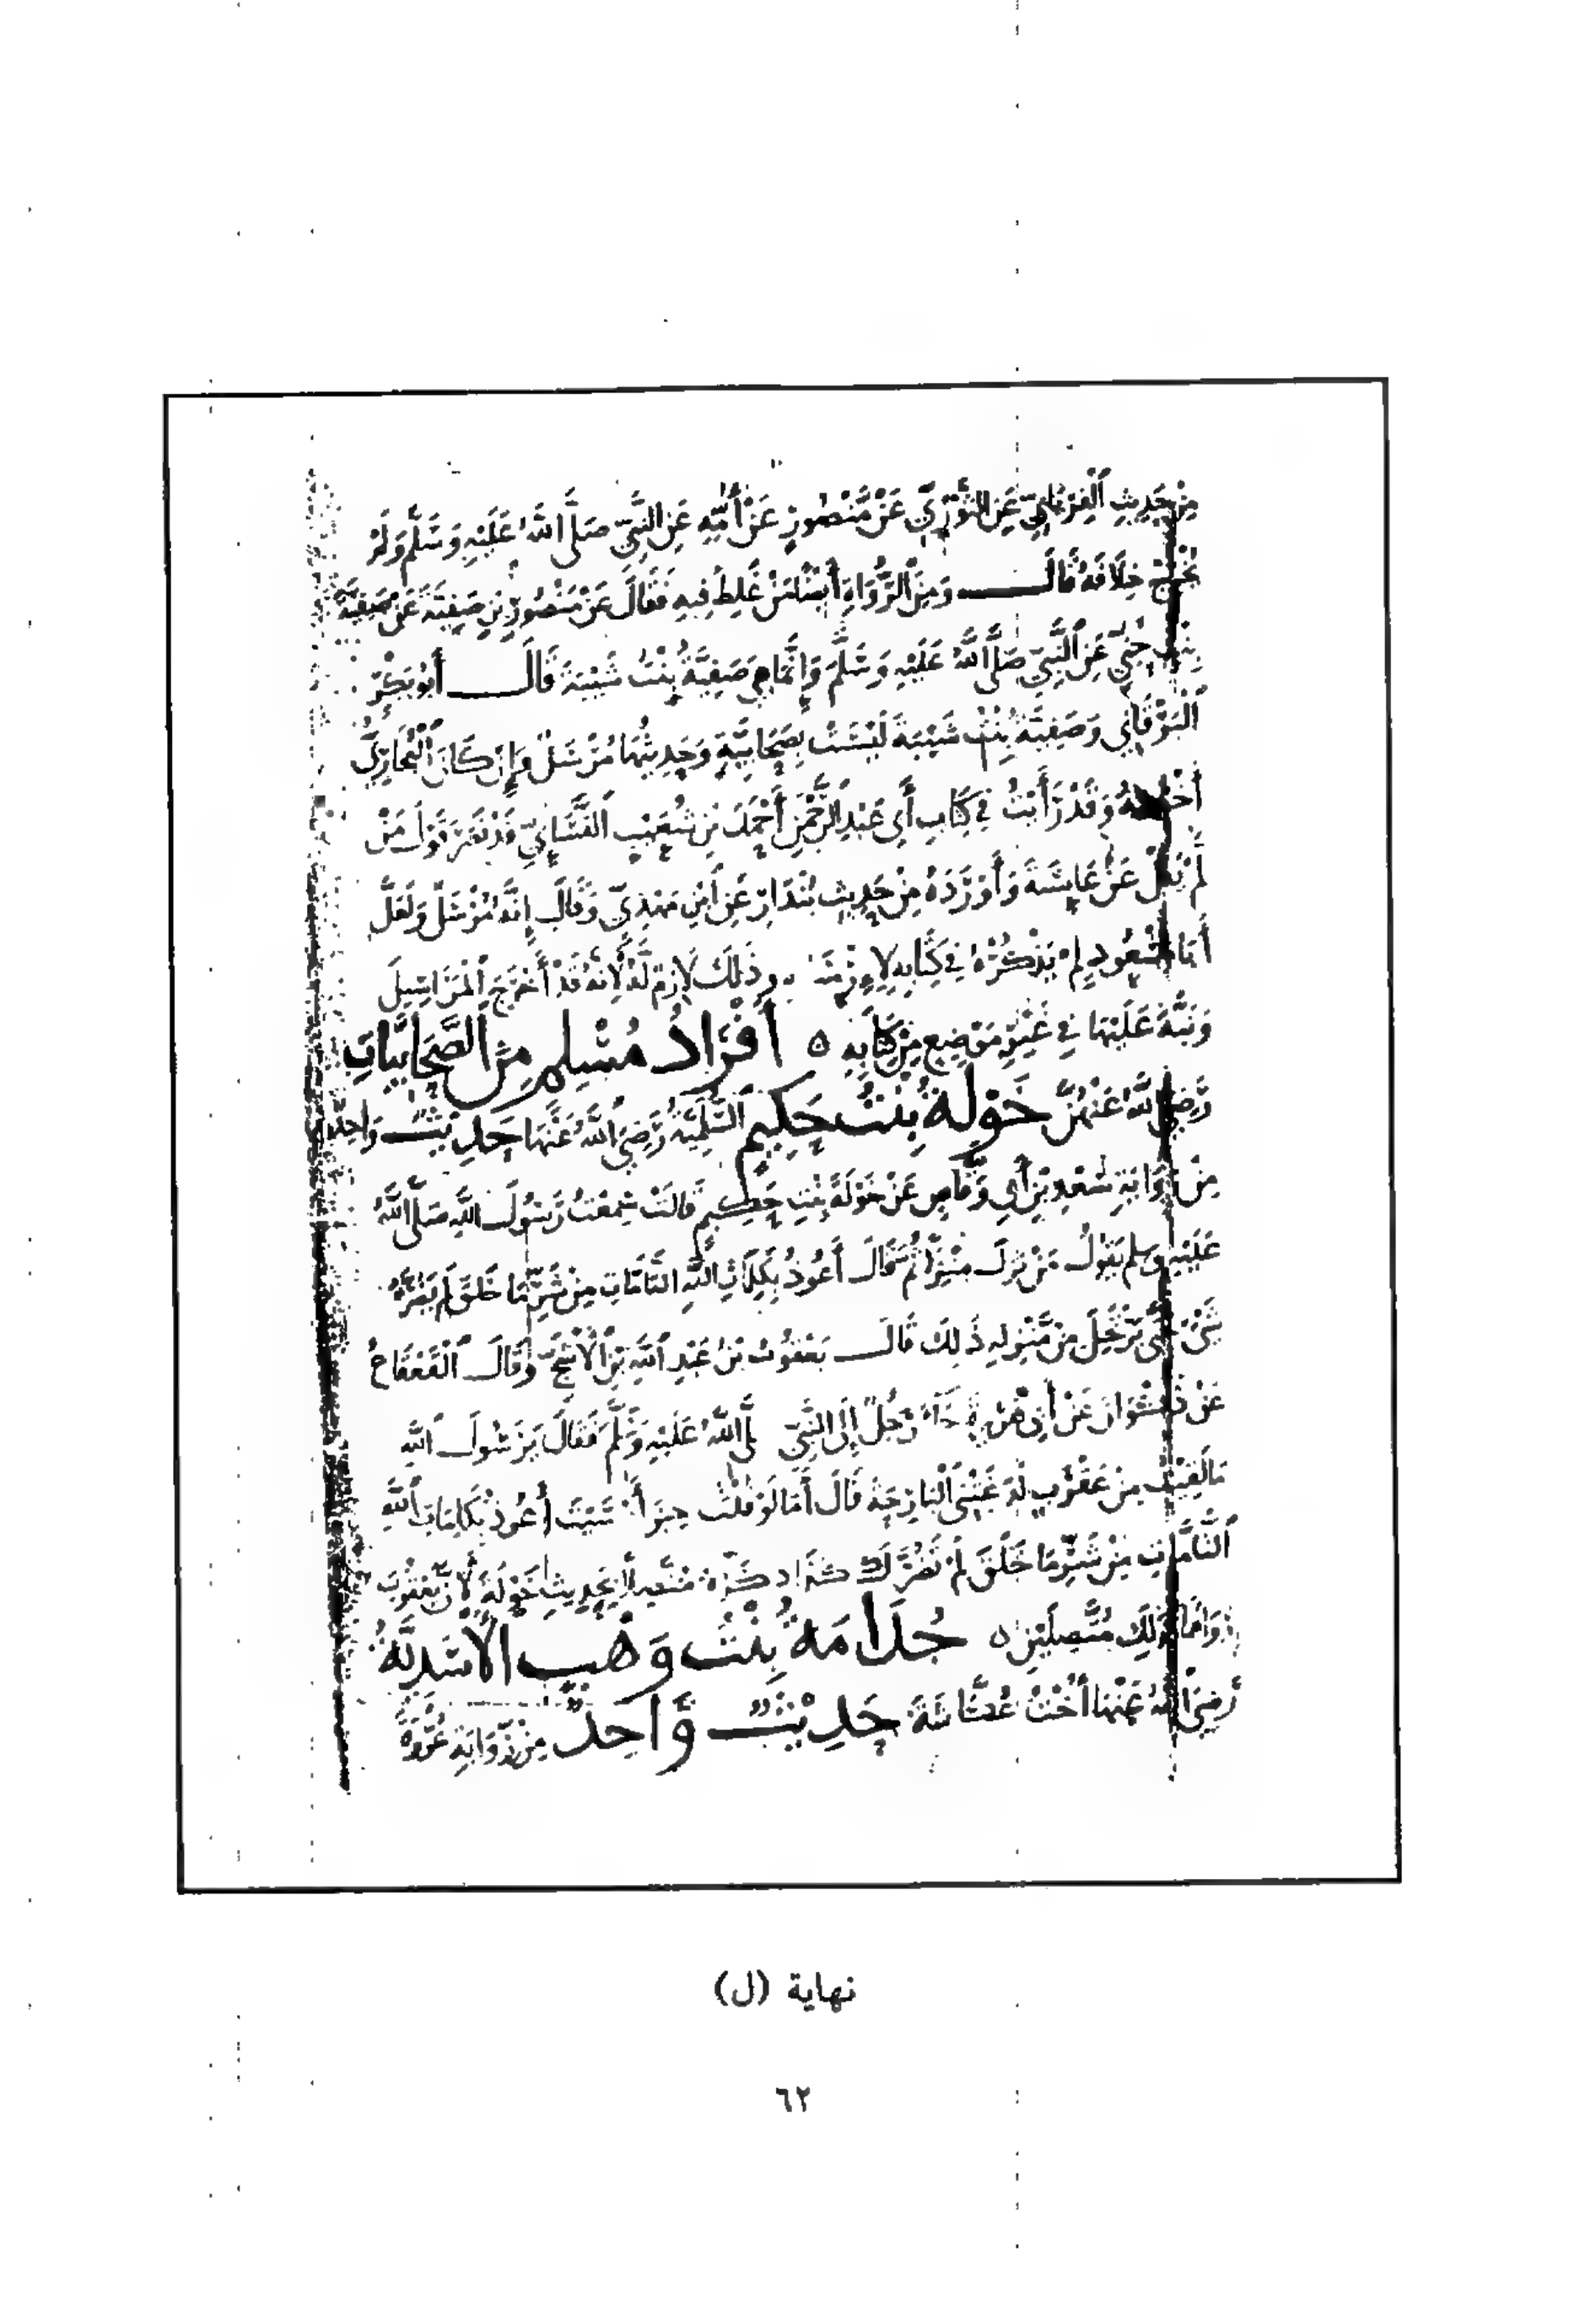 مِنْ حَدِيثِ الْفِرْيَابِيِّ عَنِ الثَّوْرِيِّ عَنْ مَنْصُورٍ عَنْ أُمِّهِ عَنِ النَّبِيِّ صَلَّى اللَّهُ عَلَيْهِ وَسَلَّمَ وَلَمْ
يُخْرِجْ خِلَافَهُ قَالَ وَمِنَ الرُّوَاةِ أَيْضًا مَنْ غَلِطَ فِيهِ فَقَالَ عَنْ مَنْصُورِ بْنِ صَفِيَّةَ عَنْ صَفِيَّةَ
بِنْتِ حُيَيٍّ عَنِ النَّبِيِّ صَلَّى اللَّهُ عَلَيْهِ وَسَلَّمَ وَإِنَّمَا هِيَ صَفِيَّةُ بِنْتُ شَيْبَةَ قَالَ أَبُو بَكْرٍ
الْبَرْقَانِي وَصَفِيَّةُ بِنْتُ شَيْبَةَ لَيْسَتْ بِصَحَابِيَّةٍ وَحَدِيثُهَا مُرْسَلٌ وَإِنْ كَانَ الْبُخَارِيُّ
أَخْرَجَهُ وَقَدْ رَأَيْتُ فِي كِتَابِ أَبِي عَبْدِ الرَّحْمَنِ أَحْمَدَ بْنِ شُعَيْبٍ النَّسَائِيِّ قَدْ نَصَرَ قَوْلَ مَنْ
لَمْ يَقُلْ عَنْ عَايِشَةَ وَأَوْرَدَهُ مِنْ حَدِيثِ بُنْدَارٍ عَنِ ابْنِ مَهْدِيٍّ وَقَالَ إِنَّهُ مُرْسَلٌ وَلَعَلَّ
أَبَا مَسْعُودٍ لَمْ يَذْكُرْهُ فِي كِتَابِهِ وَذَلِكَ لَازِمٌ لَهُ لِأَنَّهُ قَدْ أَخْرَجَ الْمَرَاسِيلَ
وَنَبَّهَ عَلَيْهَا فِي غَيْرِ مَوْضِعٍ مِنْ كِتَابِهِ ٥ أَفْرَادُ مُسْلِمٍ مِنَ الصَّحَابِيَّاتِ
رَضِيَ اللَّهُ عَنْهُنَّ خَوْلَةُ بِنْتُ حَكِيمٍ السُّلَمِيَّةُ رَضِيَ اللَّهُ عَنْهَا حَدِيثٌ وَاحِدٌ
مِنْ رِوَايَةِ سَعْدِ بْنِ أَبِي وَقَّاصٍ عَنْ خَوْلَةَ بِنْتِ حَكِيمٍ قَالَتْ سَمِعْتُ رَسُولَ اللَّهِ صَلَّى اللَّهُ
عَلَيْهِ وسلم يَقُولُ مَنْ نَزَلَ مَنْزِلًا ثُمَّ قَالَ أَعُوذُ بِكَلِمَاتِ اللَّهِ التَّامَّاتِ مِنْ شَرِّ مَا خَلَقَ لَمْ يَضُرَّهُ
شَيْءٌ حَتَّى يَرْتَحِلَ مِنْ مَنْزِلِهِ ذَلِكَ قَالَ يَعْقُوبُ بْنُ عَبْدِ اللَّهِ بْنِ الْأَشَجِّ وَقَالَ الْقَعْقَاعُ
عَنْ ذَكْوَانَ عَنْ أَبِي هُرَيْرَةَ جَاءَ رَجُلٌ إِلَى النَّبِيِّ صَلَّى اللَّهُ عَلَيْهِ وَسَلَّمَ فَقَالَ يَا رَسُولَ اللَّهِ
مَا لَقِيتُ مِنْ عَقْرَبٍ لَدَغَتْنِي الْبَارِحَةَ قَالَ أَمَا لَوْ قُلْتَ حِينَ أَمْسَيْتَ أَعُوذُ بِكَلِمَاتِ اللَّهِ
التَّامَّاتِ مِنْ شَرِّ مَا خَلَقَ لَمْ تَضُرَّكَ كَذَا ذَكَرَهُ مُتَّصِلًا بِحَدِيثِ خَوْلَةَ لِأَنَّ يَعْقُوبَ
رَوَاهُمَا كَذَلِكَ مُتَّصِلَيْنِ ٥ جُدَامَةُ بِنْتُ وَهْبٍ الْأَسَدِيَّةُ
رَضِيَ اللَّهُ عَنْهَا أُخْتُ عُكَّاشَةَ حَدِيثٌ وَاحِدٌ مِنْ رِوَايَةِ عُرْوَةَ
نهاية (ل)
٦٢